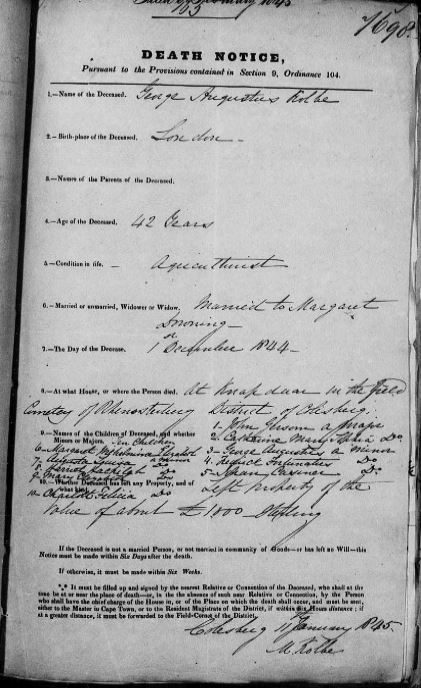 1845
7698.
DEATH NOTICE,
Pursuant to the Provisions contained in Section 9, Ordinance 104.
1.—Name of the Deceased. George Augustus Kolbe
2.—Birth-place of the Deceased. London —
3.—Names of the Parents of the Deceased.
4.—Age of the Deceased. 42 Years
5.—Condition in life. — Agriculturist
6.—Married or unmarried, Widower or Widow. Married to Margaret
7.—The Day of the Decease. 1 December 1844 —
8.—At what House, or where the Person died. At in the field
of Rhenosterberg District of Colesberg.
9.—Names of the Children of Deceased, and whether
Minors or Majors. 10 Children
1- John a Major
2- Catherine Mary Do.
3- George Augustus a minor
4. Do
5- Do
6- Margaret Wilhelmina Elizabeth
7- a minor
8- Do
9- Do
10- Charlotte Felicia Do
10.—Whether Deceased has left any Property, and of
what kind. Left Property of the
Value of about £1800 Sterling
If the Deceased is not a married Person, or not married in community of Goods—or has left no Will—this
Notice must be made within Six Days after the death.
If otherwise, it must be made within Six Weeks.
*** It must be filled up and signed by the nearest Relative or Connection of the Deceased, who shall at the
time be at or near the place of death—or, in the absence of such near Relative or Connection, by the Person
who shall have the chief charge of the House in, or of the Place on which the death shall occur, and must be sent,
either to the Master in Cape Town, or to the Resident Magistrate of the District, if within six Hours distance; if
at a greater distance, it must be forwarded to the Field-Cornet of the District.
Colesberg 11 January 1845.
M Kolbe